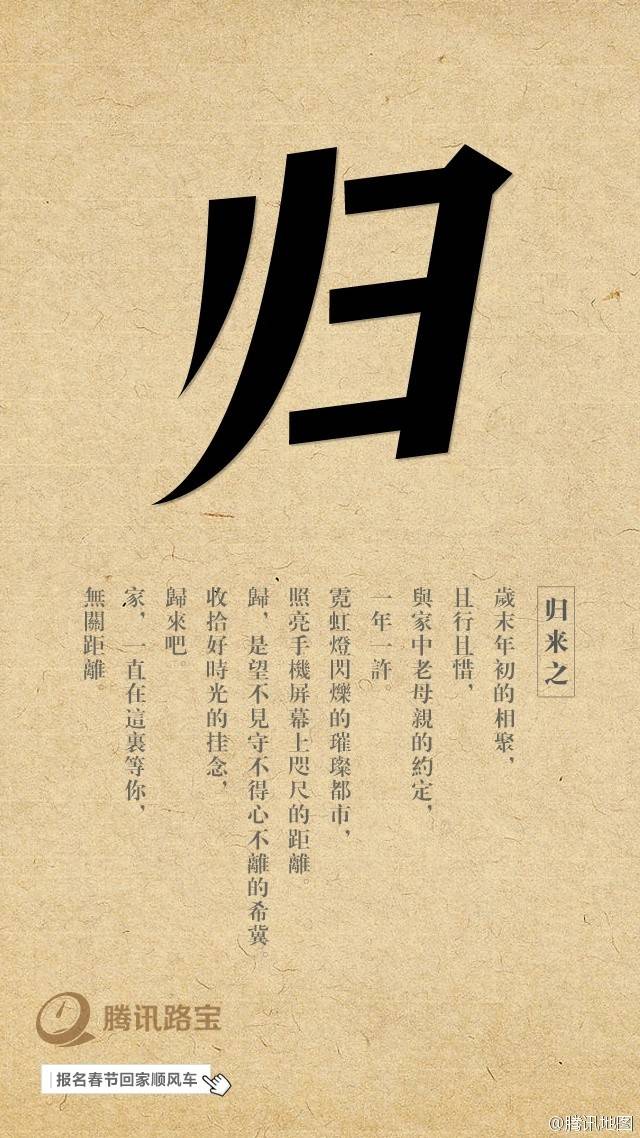 归
归来之
歲末年初的相聚，
且行且惜，
與家中老母親的約定，
一年一許。
霓虹燈閃爍的璀璨都市，
照亮手機屏幕上咫尺的距離。
歸，是望不見守不得心不離的希冀。
收拾好時光的挂念，
歸來吧。
家，一直在這裏等你，
無關距離。
腾讯路宝
报名春节回家顺风车
@腾讯地图